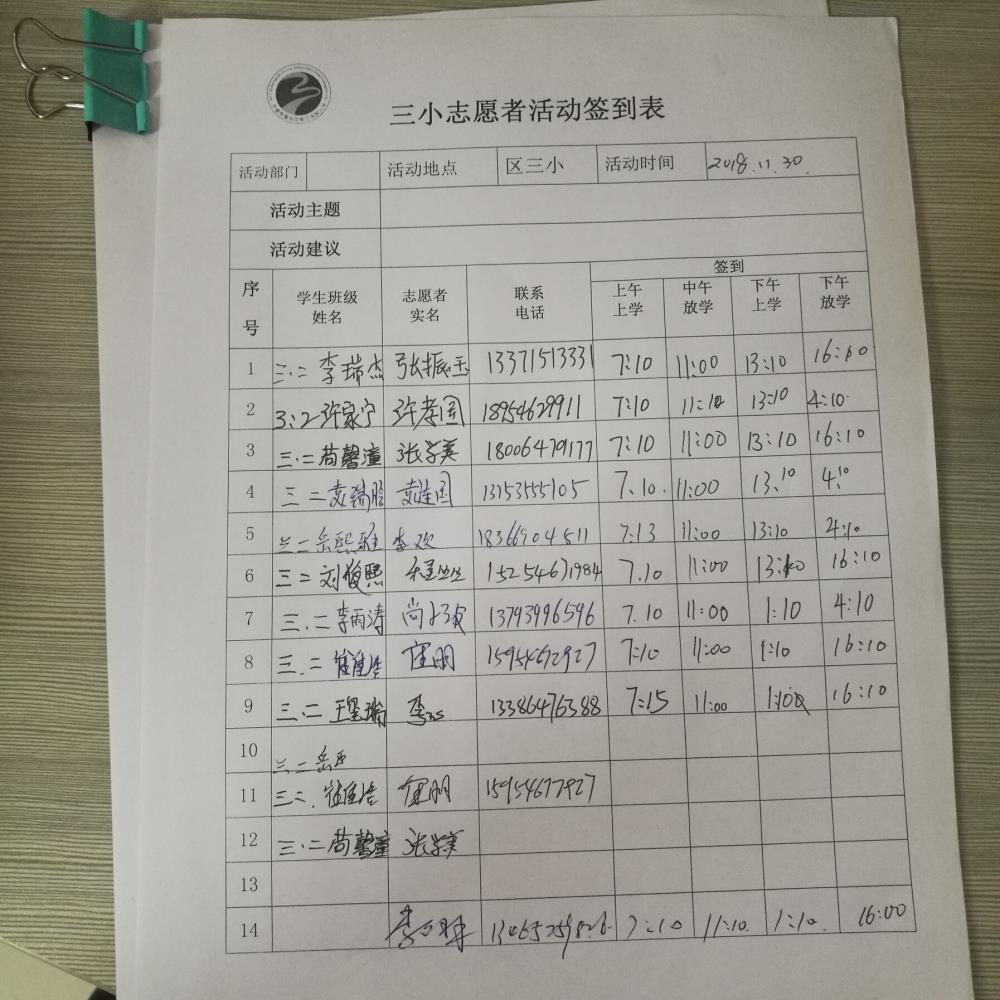 三小志愿者活动签到表
活动部门 活动地点 区三小 活动时间 2018.11.30.
活动主题
活动建议
序号 学生班级姓名 志愿者实名 联系电话 签到
上午上学 中午放学 下午上学 下午放学
1 三.二 李瑞杰 张振玉 13371513331 7:10 11:00 13:10 16:10
2 3:2 许家宁 许孝国 18954629911 7:10 11:10 13:10 4:10
3 三.二 苟馨潼 张学美 18006479177 7:10 11:00 13:10 16:10
4 三.二 国 13153555105 7.10. 11:00 13.10 4.10
5 三二 岳熙雅 李欢 18366904511 7:13 11:00 13:10 4:10
6 三二 刘俊熙 15254671984 7.10 11:00 16:10
7 三.二 李雨涛 尚 13793996596 7.10 11:00 1:10 4:10
8 三.二 崔明 15954672927 7:10 11:00 1:10 16:10
9 三.二 王 瑞 李 13386476388 7:15 11:00 1:00 16:10
10 三二 岳
11 三二. 崔明 15954672927
12 三.二 苟馨潼 张学美
13
14 李 7:10 11:10. 1:10. 16:00